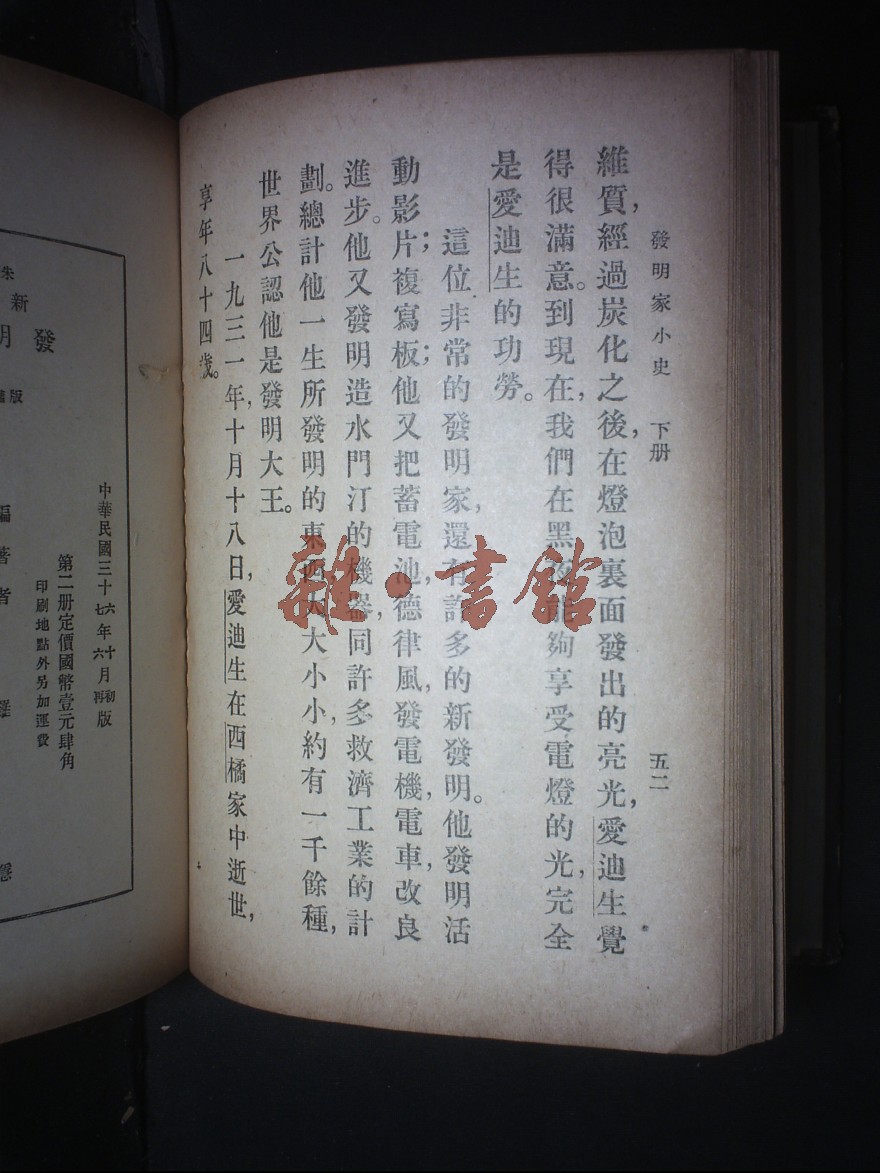 發明家小史 下册 五二
維質，經過炭化之後，在燈泡裏面發出的亮光，愛迪生覺
得很滿意。到現在，我們在黑夜能夠享受電燈的光，完全
是愛迪生的功勞。
這位非常的發明家，還有許多的新發明。他發明活
動影片；複寫板；他又把蓄電池，德律風，發電機，電車，改良
進步。他又發明造水門汀的機器，同許多救濟工業的計
劃。總計他一生所發明的東西，大大小小，約有一千餘種，
世界公認他是發明大王。
一九三一年，十月十八日，愛迪生在西橘家中逝世，
享年八十四歲。
雜·書館
中華民國三十六七年十六月初再版
第二册定價國幣壹元肆角
印刷地點外另加運費
發明
新
編著者